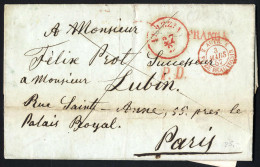 A Monsieur
FRANCA
Félix Prot Successeur
à Monsieur
P.D.
Lubin.
Rue Sainte-Anne, 55, près le
Palais Royal.
Paris